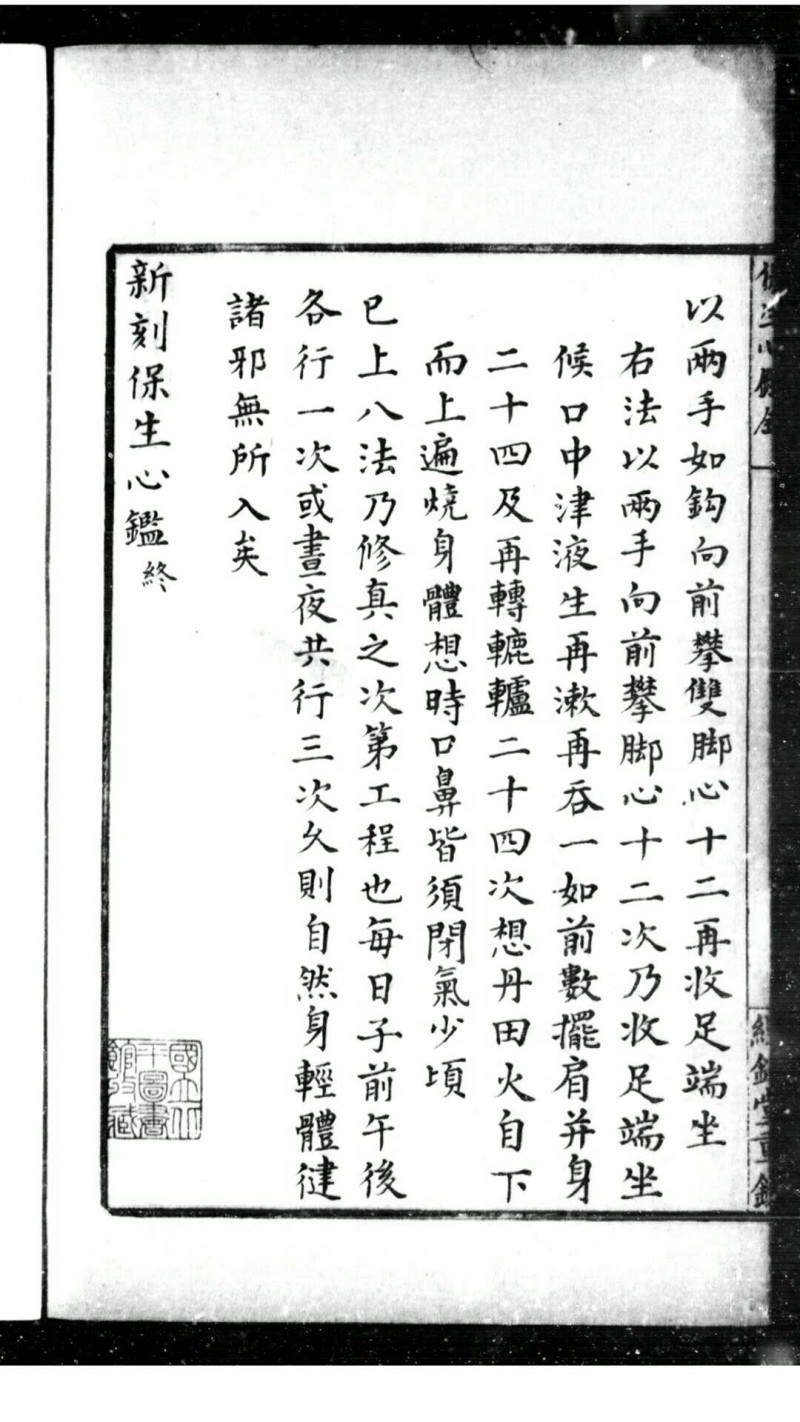 以兩手如鈎向前攀雙脚心十二再收足端坐
右法以兩手向前攀脚心十二次乃收足端坐
候口中津液生再漱再吞一如前數擺肩并身
二十四及再轉轆轤二十四次想丹田火自下
而上遍燒身體想時口鼻皆須閉氣少頃
已上八法乃修真之次第工程也每日子前午後
各行一次或晝夜共行三次久則自然身輕體健
諸邪無所入矣
新刻保生心鑑終
國立北
平圖書
館收藏